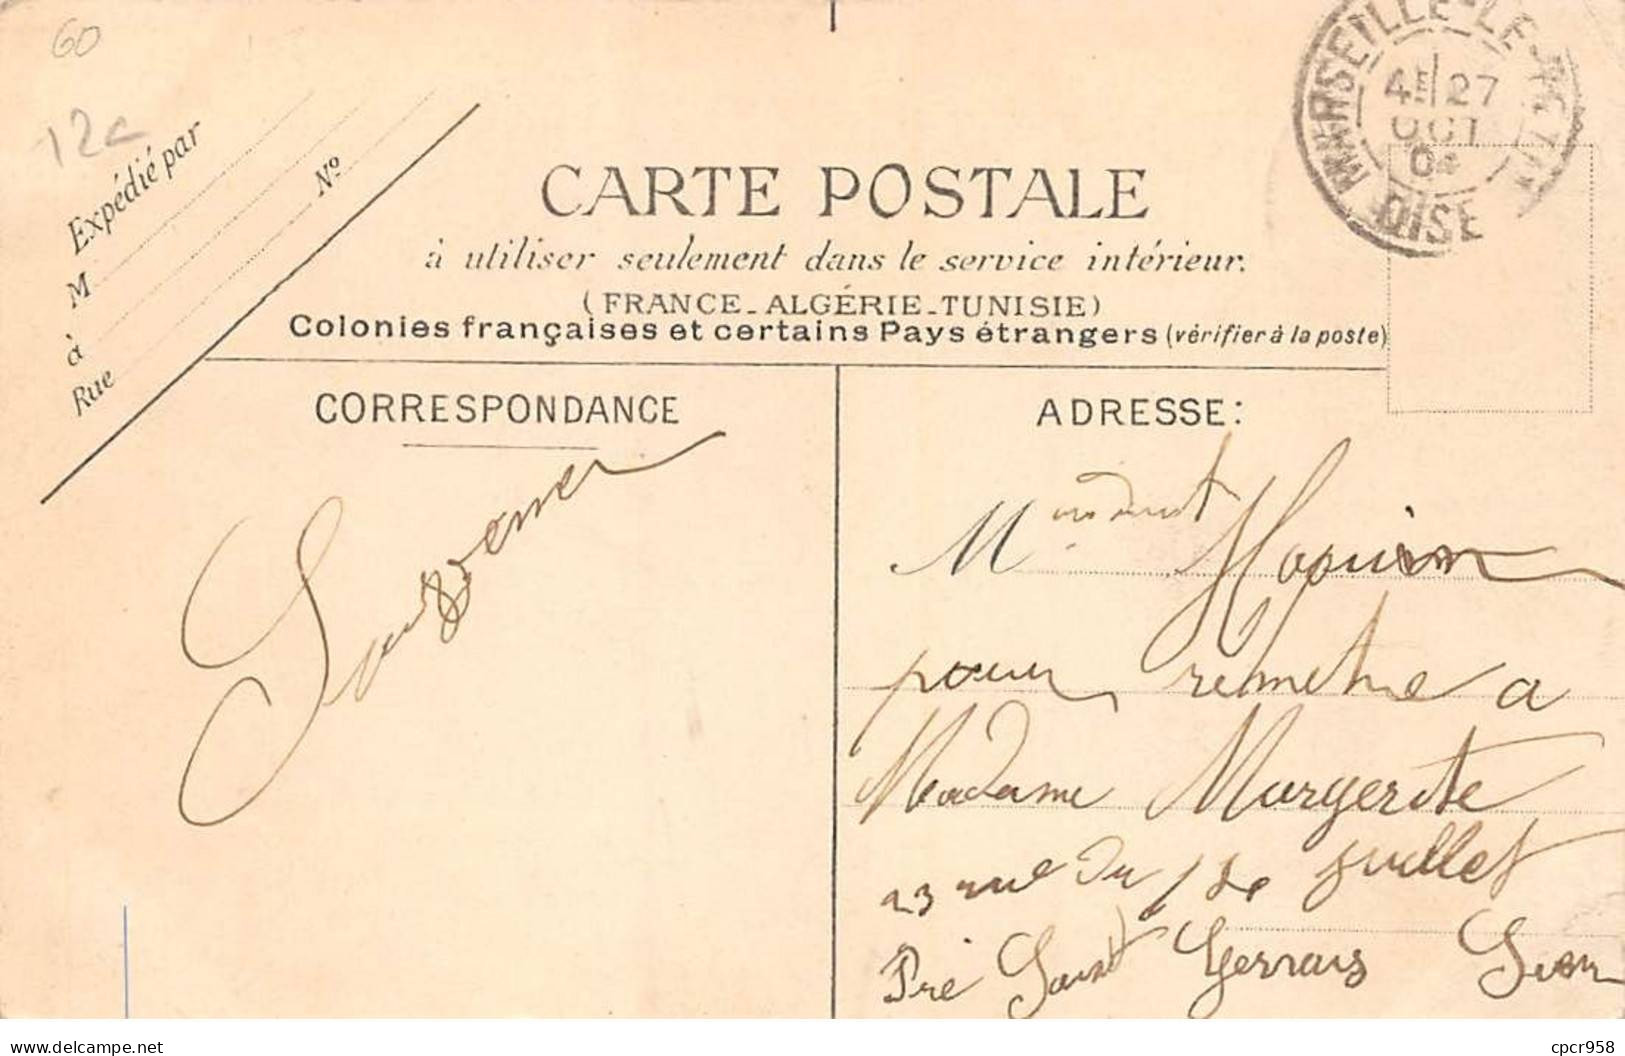 60
12c
MARSEILLE-LE-
4E 27
OCT
04
OISE
Expédié par
M
à
Rue
N°
CARTE POSTALE
à utiliser seulement dans le service intérieur.
(FRANCE-ALGÉRIE-TUNISIE)
Colonies françaises et certains Pays étrangers (vérifier à la poste)
CORRESPONDANCE
ADRESSE:
M
pour remetre a
Madame Margerite
23 rue du 14 juillet
Pré Saint Gervais Seine
www.delcampe.net
cpcr958